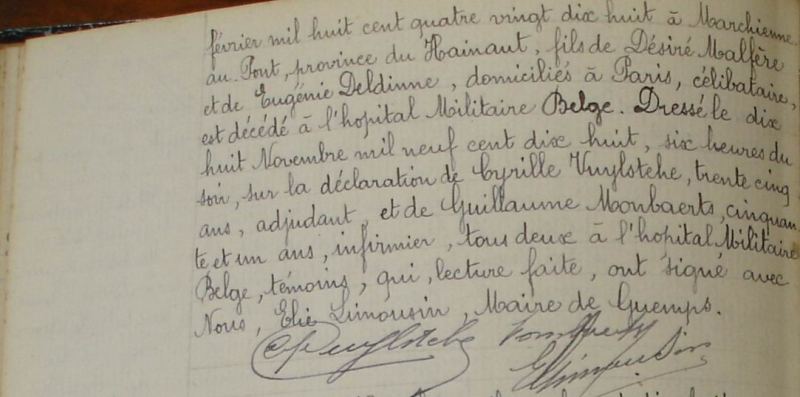 février mil huit cent quatre vingt dix huit à Marchienne-
au-Pont, province du Hainaut, fils de Désiré Malfère
et de Eugénie Deldinne, domiciliés à Paris, célibataire,
est décédé à l'hopital Militaire Belge. Dressé le dix
huit Novembre mil neuf cent dix huit, six heures du
soir, sur la déclaration de Cyrille Vuylsteke, trente cinq
ans, adjudant, et de Guillaume Monbaerts, cinquan
te et un ans, infirmier, tous deux à l'hopital Militaire
Belge, témoins, qui, lecture faite, ont signé avec
Nous, Elie Limousin, Maire de Guemps.
CVuylsteke
ELimousin